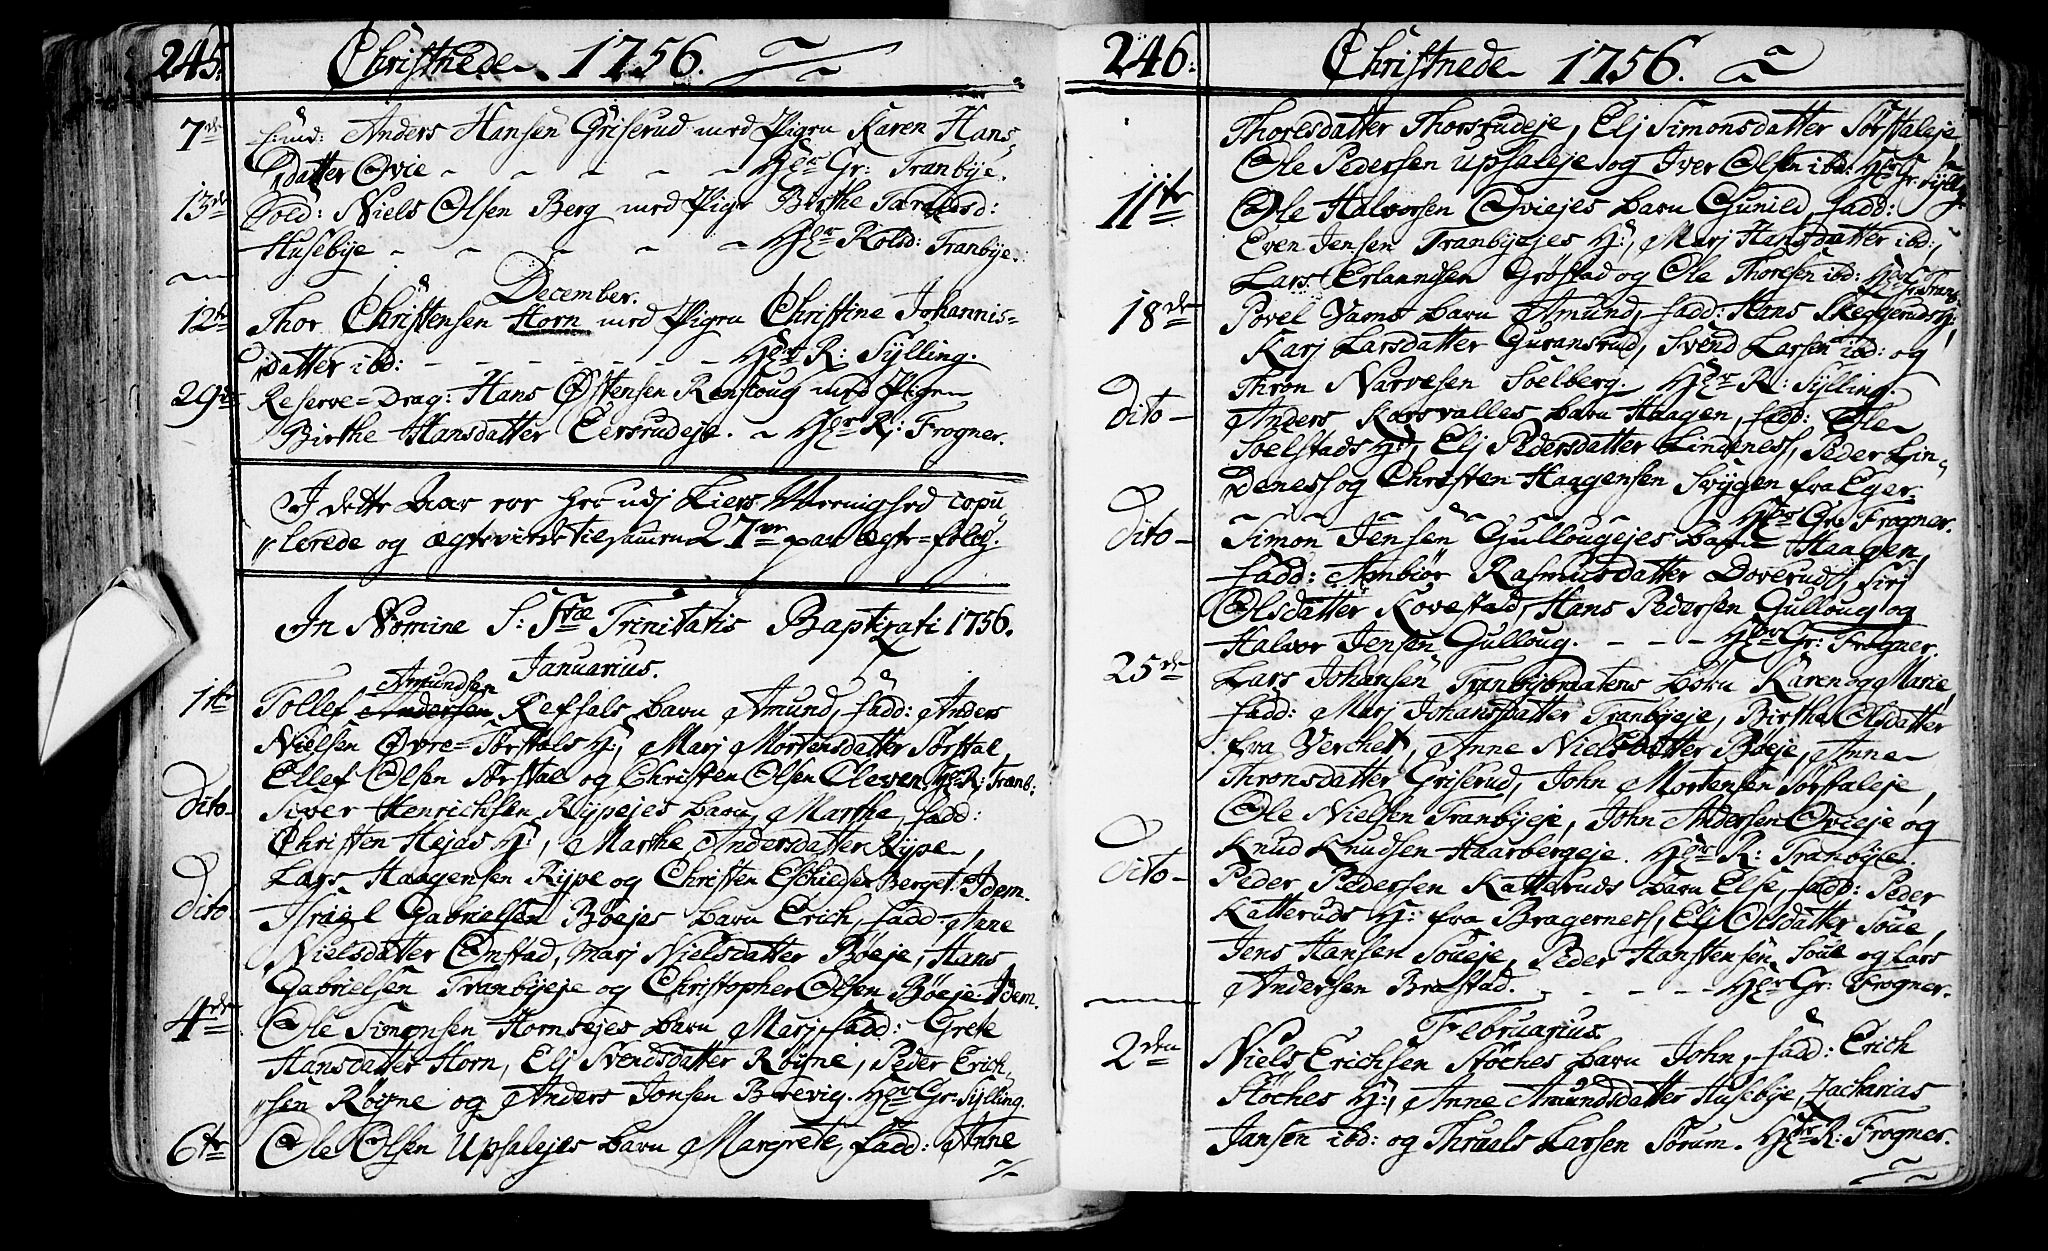 245.
Christnede 1756.
7de Smd: Anders Hansen Griserud med Pigen Karen Hans-
datter Ovie - - - - - Hr Gr: Tranbye.
13de Sold: Niels Olsen Berg med Pigen Birthe Taraldsd:
Husebye - - - - - Hr Kolsd: Tranbye.
December.
12te Thor Christensen Horn med Pigen Christine Johannis-
datter ibd: - - - - - - Hr R: Sylling.
29de Reserve=Drag: Hans Østensen Renskoug med Pigen
Birthe Hansdatter Eersrudeje. - Hr R: Frogner.
I dette Aar er her udj Liers Menighed copu
lerede og ægteviede tilsammen 27ve par Ægte=folch.
In Nomine S: Stæ Trinitatis Baptizati 1756.
Januarius.
Amundsen
1te Tollef Andersen Refsals barn Amund, fadd: Anders
Nielsen Øvre=Sørstals H:, Marj Mortensdatter Sørstal,
Ellef Olsen Sørstal og Christen Olsen Cleven Hr R: Tranb:
dito- Siver Henrichsen Rypejes barn Marthe, fadd:
Christen Hejas H:, Marthe Andersdatter Rype,
Lars Haagensen Rype og Christen Eschildsen Berget. Idem.
dito- Israel Gabrielsen Bøejes barn Erich, fadd: Anne
Nielsdatter Enstad, Marj Nielsdatter Bøeje, Hans
Gabrielsen Tranbyeje og Christopher Olsen Bøeje. Idem.
4de Ole Simonsen Hornsejes barn Marj, fadd: Grete
Hansdatter Horn, Elj Svendsdatter Røigne, Peder Erich
sen Røigne og Anders Jonsen Brevig. Hr Gr: Sylling.
6te Ole Olsen Upsalejes barn Margrete, fadd: Anne
246.
Christnede 1756.
Thoresdatter Thorsrudeje, Elj Simonsdatter Sørstaleje,
Ole Pedersen Upsaleje og Iver Olsen ibd: Hr Gr: Sylling.
11te Ole Halvorsen Oviejes barn Gunild, fadd:
Even Jensen Tranbyejes H:, Marj Hansdatter ibd:,
Lars Erlandsen Grøstad og Ole Thoresen ibd: Hr Gr: Tranb:
18de Povel Vams barn Amund, fadd: Hans Skeggeruds H:,
Karj Larsdatter Guransrud, Svend Larsen ibd: og
Thron Narvesen Soelberg. Hr R: Sylling.
dito- Anders Korsvalles barn Haagen, fadd: Ole
Soelstads H:, Elj Pedersdatter Lindenes, Peder Lin-
denes og Christen Haagensen Svygen fra Eger.
Hr Gr: Frogner.
dito- Simon Jensen Gullougejes barn Haagen,
fadd: Ambiør Rasmusdatter Doverud, Sirj
Olsdatter Kovestad, Hans Pedersen Gulloug og
Halvor Jensen Gulloug. - - - Hr Gr: Frogner.
25de Lars Johansen Tranbybraatens børn Karen og Marie,
fadd: Marj Johansdatter Tranbyeje, Birthe Olsdatter
fra Verchet, Anne Nielsdatter Bøeje, Anne
Thronsdatter Griserud, John Mortensen Sørstaleje,
Ole Nielsen Tranbyeje, John Andersen Ovieje og
Knud Knudsen Haarbergeje. Hr R: Tranbye.
dito- Peder Pedersen Katteruds barn Else, fadd: Peder
Katteruds H: fra Bragernes, Elj Olsdatter Soue,
Jens Hansen Soueje, Peder Hanstensen Soue og Lars
Andersen Brastad. - - - - Hr Gr: Frogner.
Februarius.
2den Niels Erichsen Støches barn John, fadd: Erich
Støches H:, Anne Amundsdatter Husebye, Zacharias
Jansen ibd: og Thruuls Larsen Sørum. Hr R: Frogner.